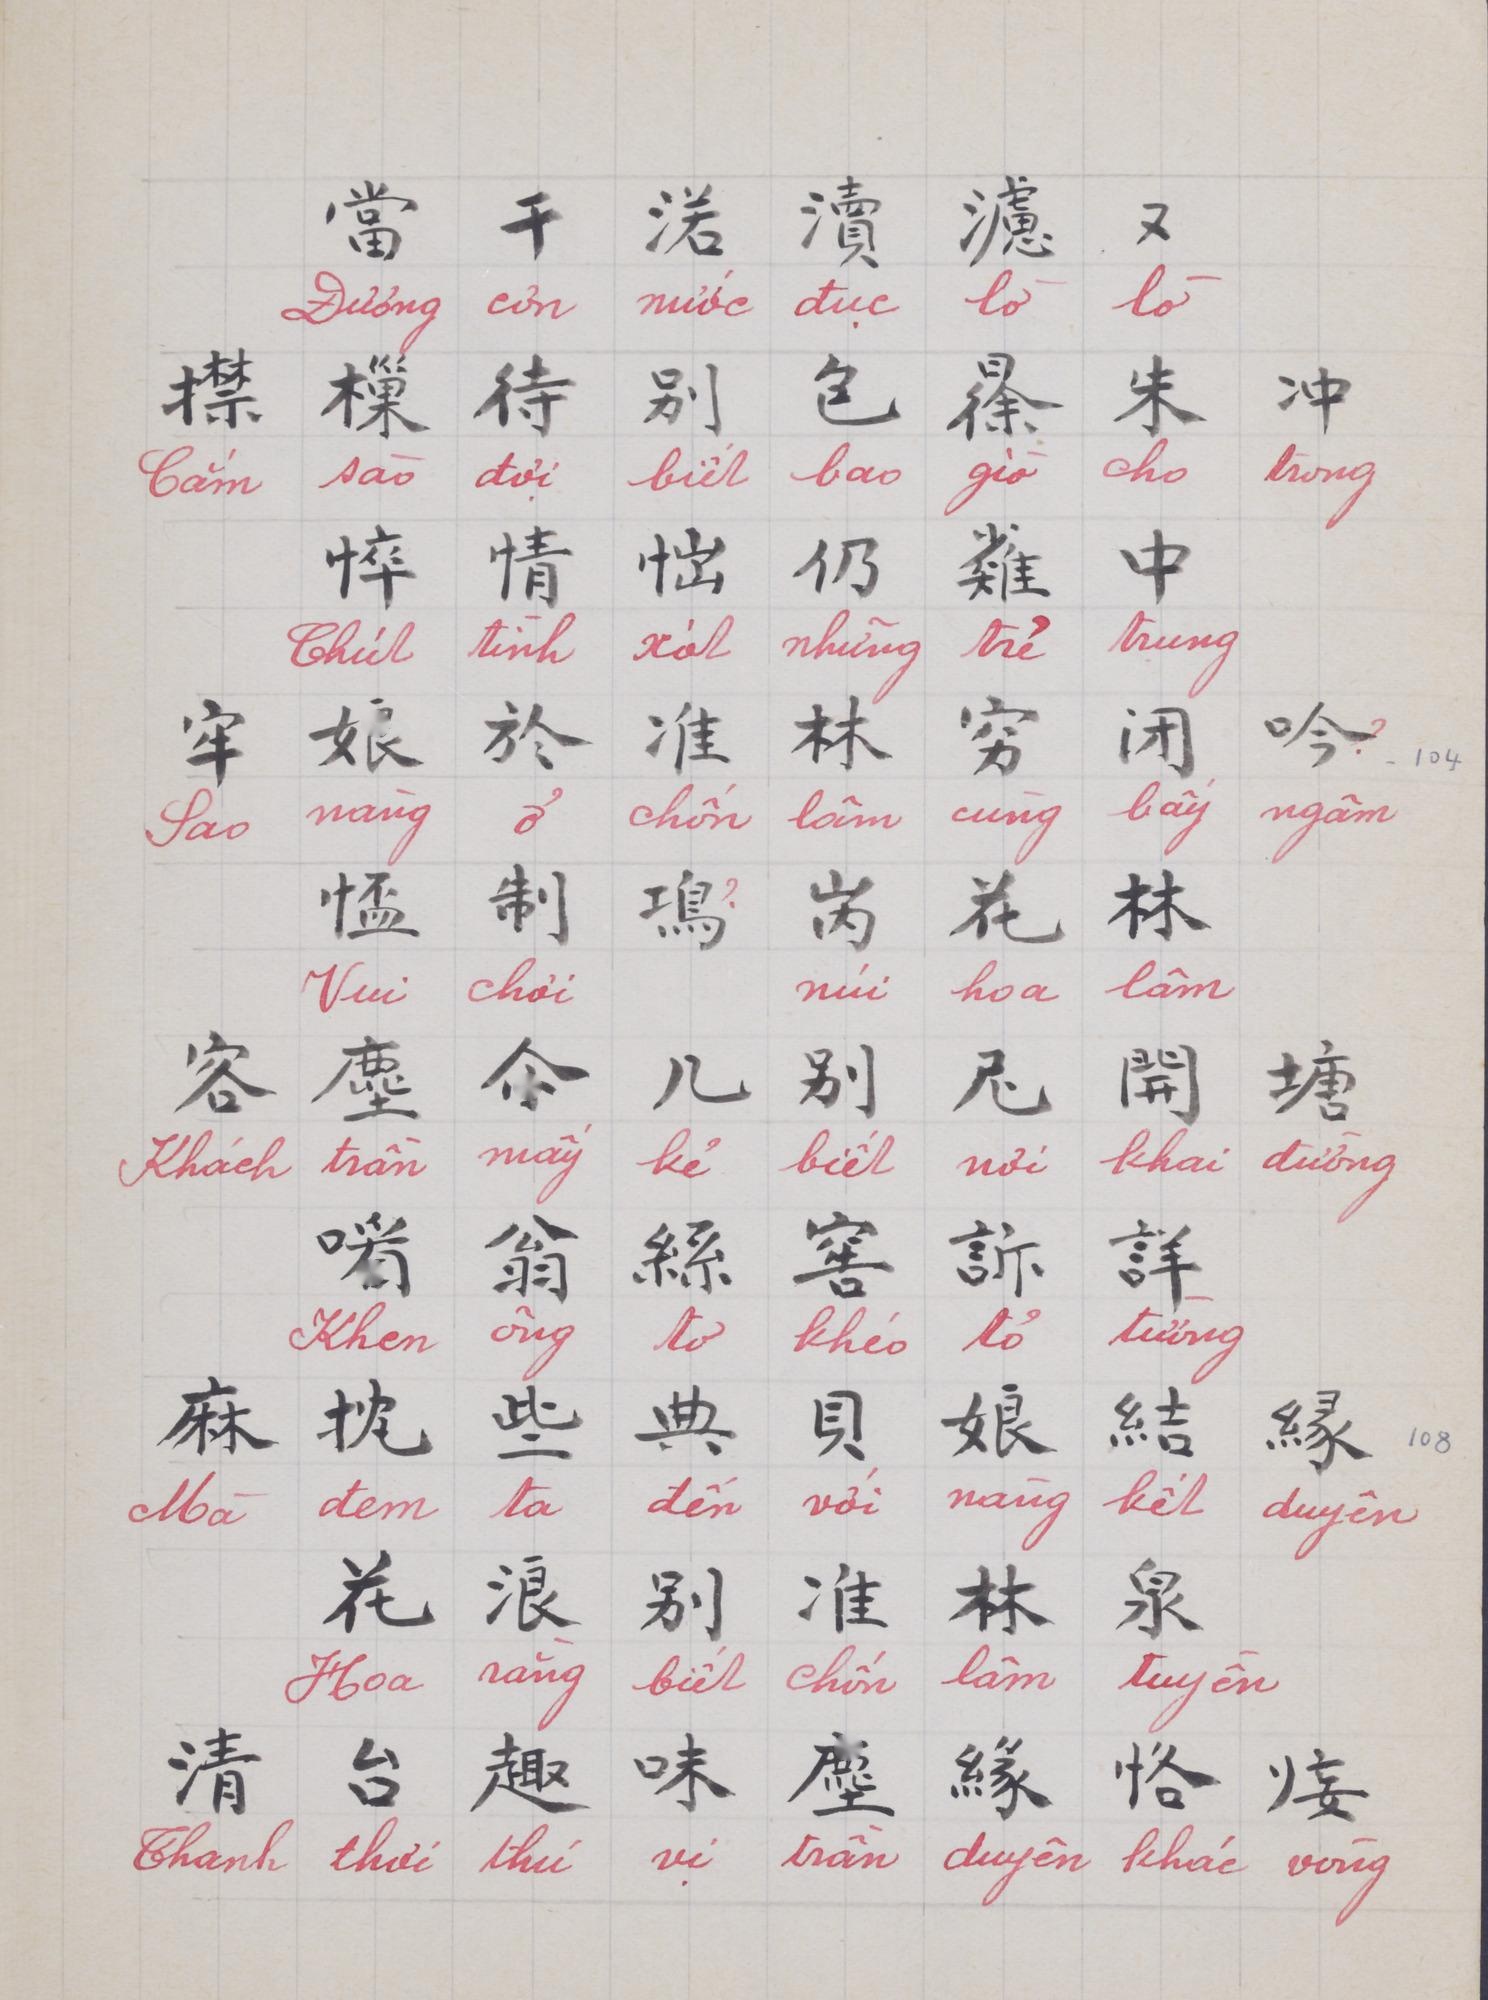 當 干 渃 瀆 濾 又
Đương cơn nước đục lờ lờ
襟 樔 待 别 包 𣇞 朱 冲
Cắm sào đợi biết bao giờ cho trong
悴 情 㤕 仍 難 中
Chút tình xót những trẻ trung
牢 娘 於 准 林 穷 闭 吟?
Sao nàng ở chốn lâm cùng bấy ngâm
104
㤪 制 鳿? 𡶀 花 林
Vui chơi núi hoa lâm
客 塵 尒 几 别 尼 開 塘
Khách trần mấy kẻ biết nơi khai đường
㗂 翁 絲 窖 訴 詳
Khen ông tơ khéo tỏ tường
麻 抌 些 典 貝 娘 結 緣
Mà đem ta đến với nàng kết duyên
108
花 浪 别 准 林 泉
Hoa rằng biết chốn lâm tuyền
清 台 趣 味 塵 緣 恪 𤊡
Thanh thơi thú vị trần duyên khác vòng